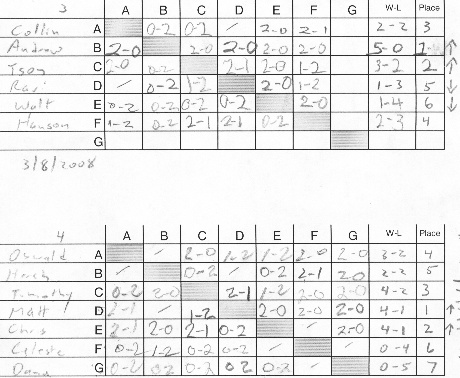 3 A B C D E F G W-L Place
Collin A 0-2 0-2 / 2-0 2-1 2-2 3
Andrew B 2-0 2-0 2-0 2-0 2-0 5-0 1 ↑
Tson C 2-0 0-2 2-1 2-0 1-2 3-2 2 ↑
Ravi D / 0-2 1-2 2-0 1-2 1-3 5 ↓
Walt E 0-2 0-2 0-2 0-2 2-0 1-4 6 ↓
Hanson F 1-2 0-2 2-1 2-1 0-2 2-3 4
G
3/8/2008
4 A B C D E F G W-L Place
Oswald A / 2-0 1-2 1-2 2-0 2-0 3-2 4
B / 0-2 / 0-2 2-1 2-0 2-2 5
Timothy C 0-2 2-0 2-1 1-2 2-0 2-0 4-2 3
Matt D 2-1 / 1-2 2-0 2-0 2-0 4-1 1 ↑
Chris E 2-1 2-0 2-1 0-2 / 2-0 4-1 2 ↑
Celeste F 0-2 1-2 0-2 0-2 / / 0-4 6
Dana G 0-2 0-2 0-2 0-2 0-2 / 0-5 7